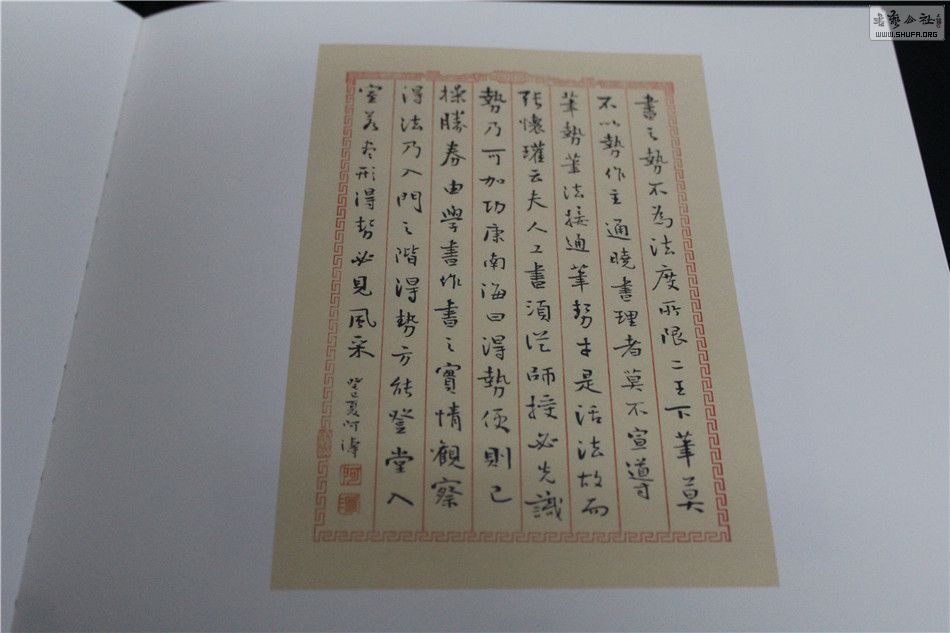 書之勢不為法度所限二王下筆莫
不以勢作主通曉書理者莫不宣導
筆勢筆法接通筆勢才是活法故而
張懷瓘云夫人工書須從師授必先識
勢乃可加功康南海曰得勢便則已
操勝券由學書作書之實情觀察
得法乃入門之階得勢方能登堂入
室若在形得勢必見風采
癸巳夏阿濤
書藝公社
WWW.SHUFA.ORG